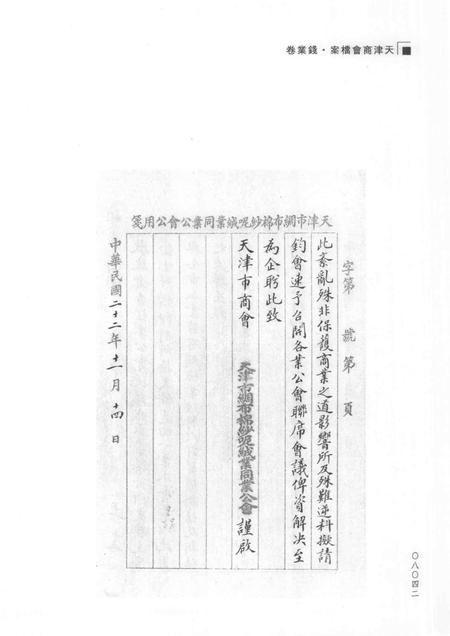 天津商會檔案·錢業卷
天津市綢布棉紗呢絨業同業公會公用箋
字第　號第　頁
此紊亂殊非保護商業之道影響所及殊難逆料擬請
鈞會速予召開各業公會聯席會議俾資解决至
為企盼此致
天津市商會
天津市綢布棉紗呢絨業同業公會謹啟
中華民國二十二年十一月十四日
〇八〇四二